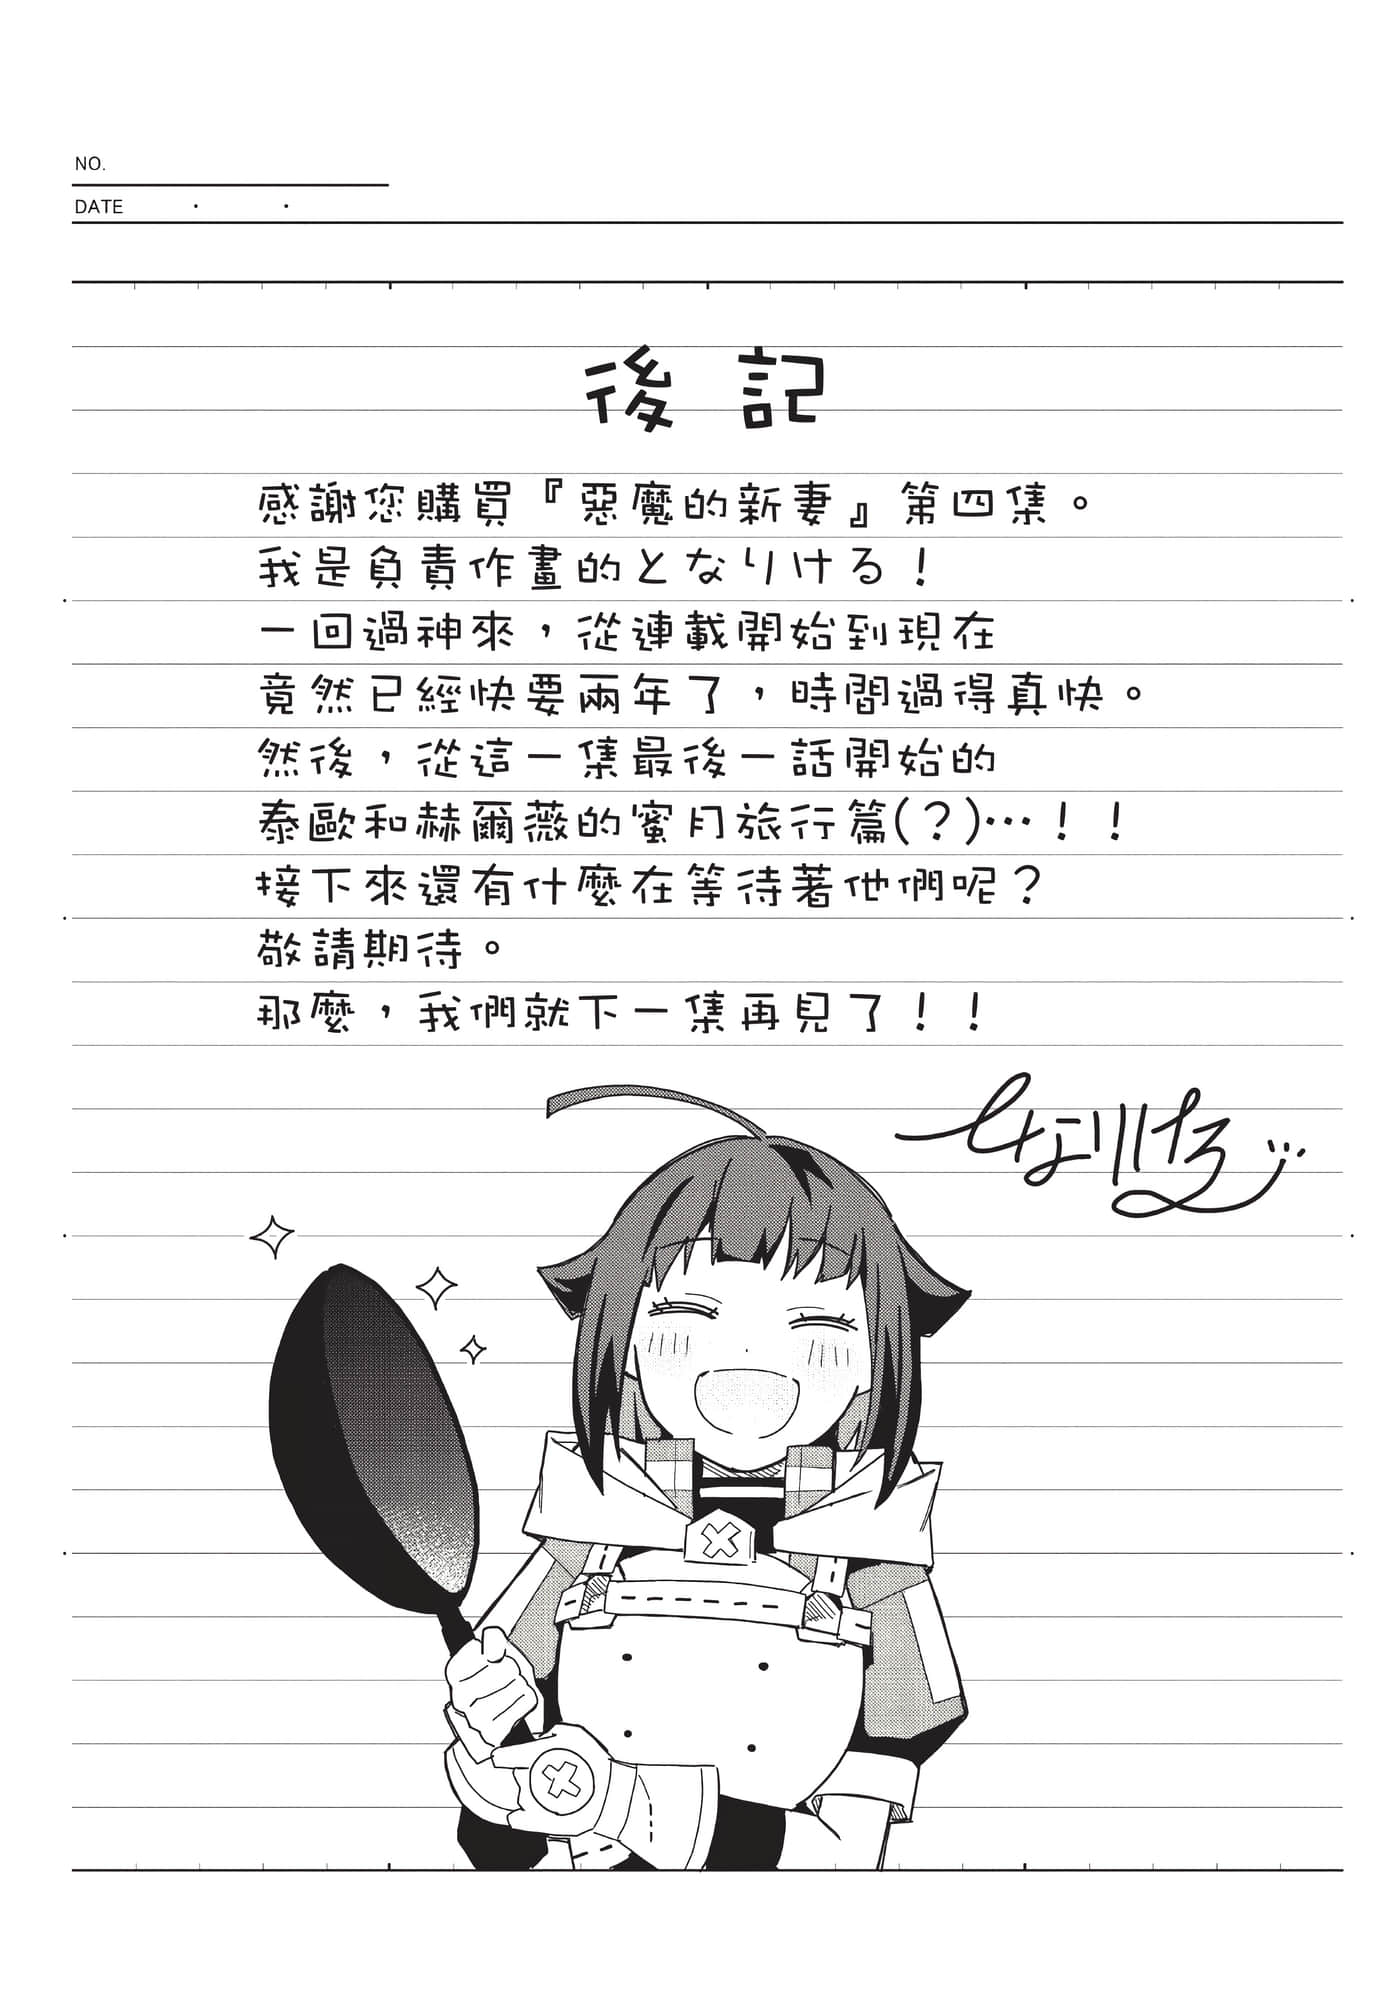 NO.
DATE ・ ・
後記
感謝您購買『惡魔的新妻』第四集。
我是負責作畫的となりける！
一回過神來，從連載開始到現在
竟然已經快要兩年了，時間過得真快。
然後，從這一集最後一話開始的
泰歐和赫爾薇的蜜月旅行篇(？)…！！
接下來還有什麼在等待著他們呢？
敬請期待。
那麼，我們就下一集再見了！！
となりける